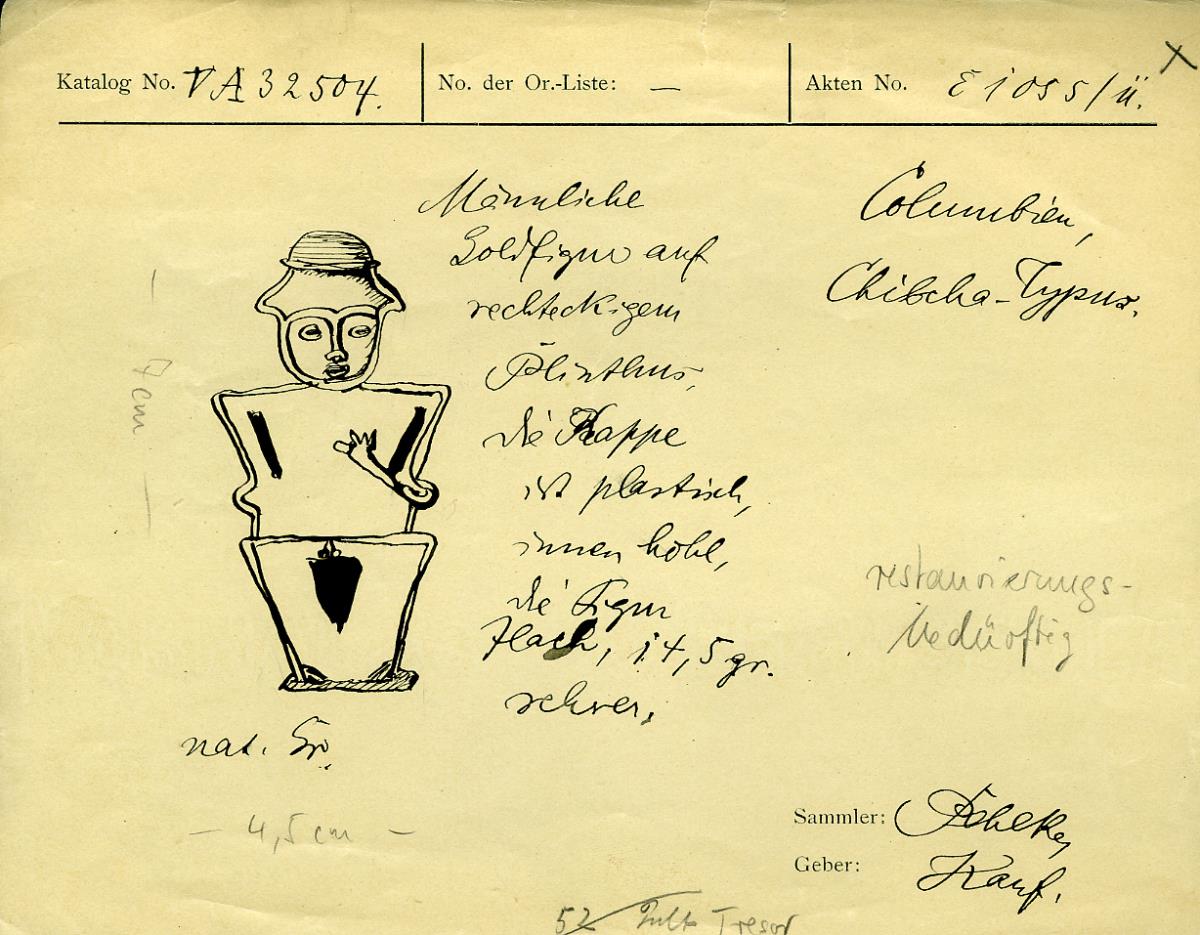 Katalog No. VA 32504.
No. der Or.-Liste: —
Akten No. E 1055/ü.
×
Männliche
Goldfigur auf
rechteckigem
Plinthus,
die Kappe
ist plastisch,
innen hohl,
die Figur
flach, 14,5 gr.
schwer.
Columbien,
Chibcha-Typus.
7 cm
nat. Gr.
— 4,5 cm —
restaurierungs-
bedürftig
Sammler:
Geber: Kauf.
52 Tresor